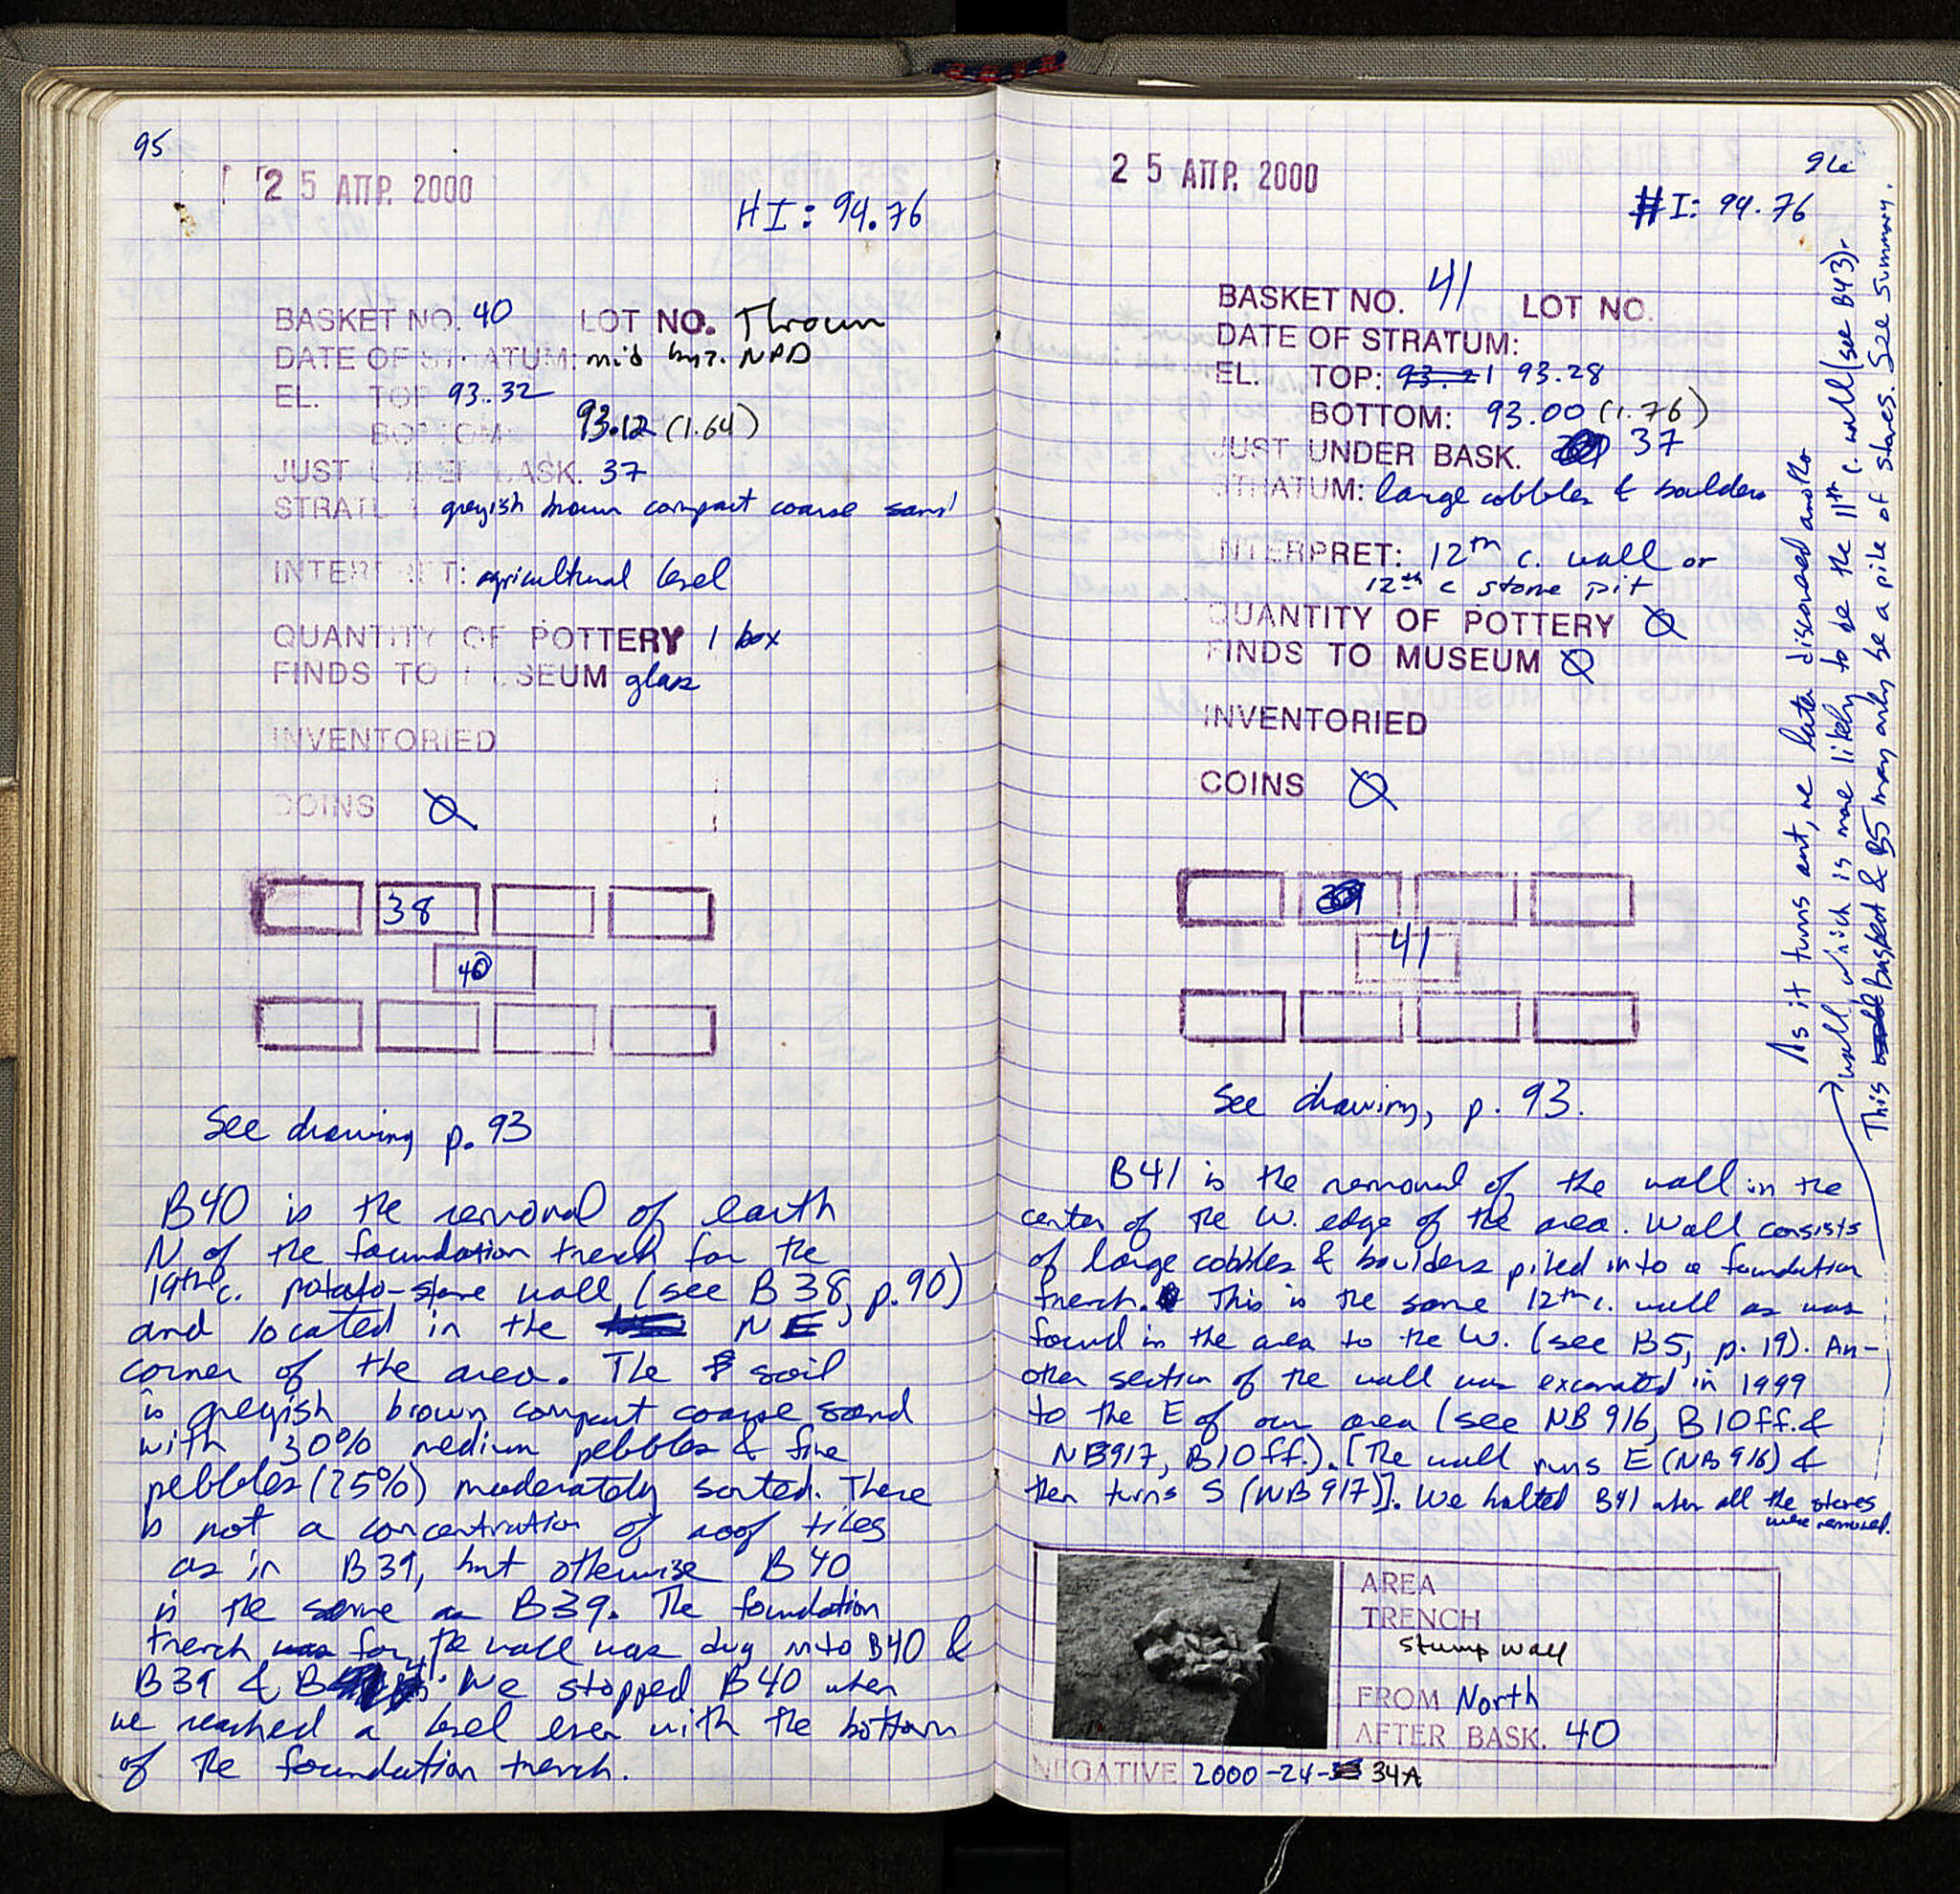 95
25 ΑΠΡ. 2000
HI: 94.76
BASKET NO. 40 LOT NO. Thrown
DATE OF STRATUM: mid byz. NPD
EL. TOP 93.32
BOTTOM: 93.12 (1.64)
JUST UNDER BASK. 37
STRATUM: greyish brown compact coarse sand
INTERPRET: agricultural level
QUANTITY OF POTTERY 1 box
FINDS TO MUSEUM glass
INVENTORIED
COINS Ø
38
40
See drawing p. 93
B40 is the removal of earth
N of the foundation trench for the
19th c. potato-stone wall (see B 38, p. 90)
and located in the NE
corner of the area. The soil
is greyish brown compact coarse sand
with 30% medium pebbles & fine
pebbles (25%) moderately sorted. There
is not a concentration of roof tiles
as in B39, but otherwise B40
is the same as B39. The foundation
trench was for the wall was dug into B40 &
B39 & B We stopped B40 when
we reached a level even with the bottom
of the foundation trench.
25 ΑΠΡ. 2000
96
HI: 94.76
BASKET NO. 41 LOT NO.
DATE OF STRATUM:
EL. TOP: 93.21 93.28
BOTTOM: 93.00 (1.76)
JUST UNDER BASK. 37
STRATUM: large cobbles & boulders
INTERPRET: 12th c. wall or
12th c stone pit
QUANTITY OF POTTERY Ø
FINDS TO MUSEUM Ø
INVENTORIED
COINS Ø
41
See drawing, p. 93.
B41 is the removal of the wall in the
center of the W. edge of the area. Wall consists
of large cobbles & boulders piled into a foundation
trench. This is the same 12th c. wall as was
found in the area to the W. (see B5, p. 19). An-
other section of the wall was excavated in 1999
to the E of our area (see NB 916, B10ff. &
NB917, B10ff.). [The wall runs E (NB 916) &
then turns S (NB 917)]. We halted B41 when all the stones
were removed.
As it turns out, we later discovered another
wall which is more likely to be the 11th c. wall (see B43).
This basket & B5 may only be a pile of stones. See Summary.
AREA
TRENCH
stump wall
FROM North
AFTER BASK. 40
NEGATIVE 2000-24- 34A